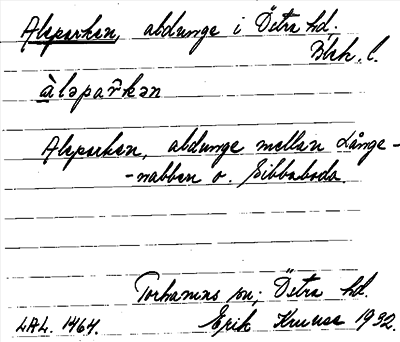 Alsparken, aldunge i Östra hd.
Blek. l.
àləpar̃kən
Alsparken, aldunge mellan Långe-
-nabben o. Sibbaboda.
Torhamns sn; Östra hd.
LAL. 1464. Erik Kruuse 1932.